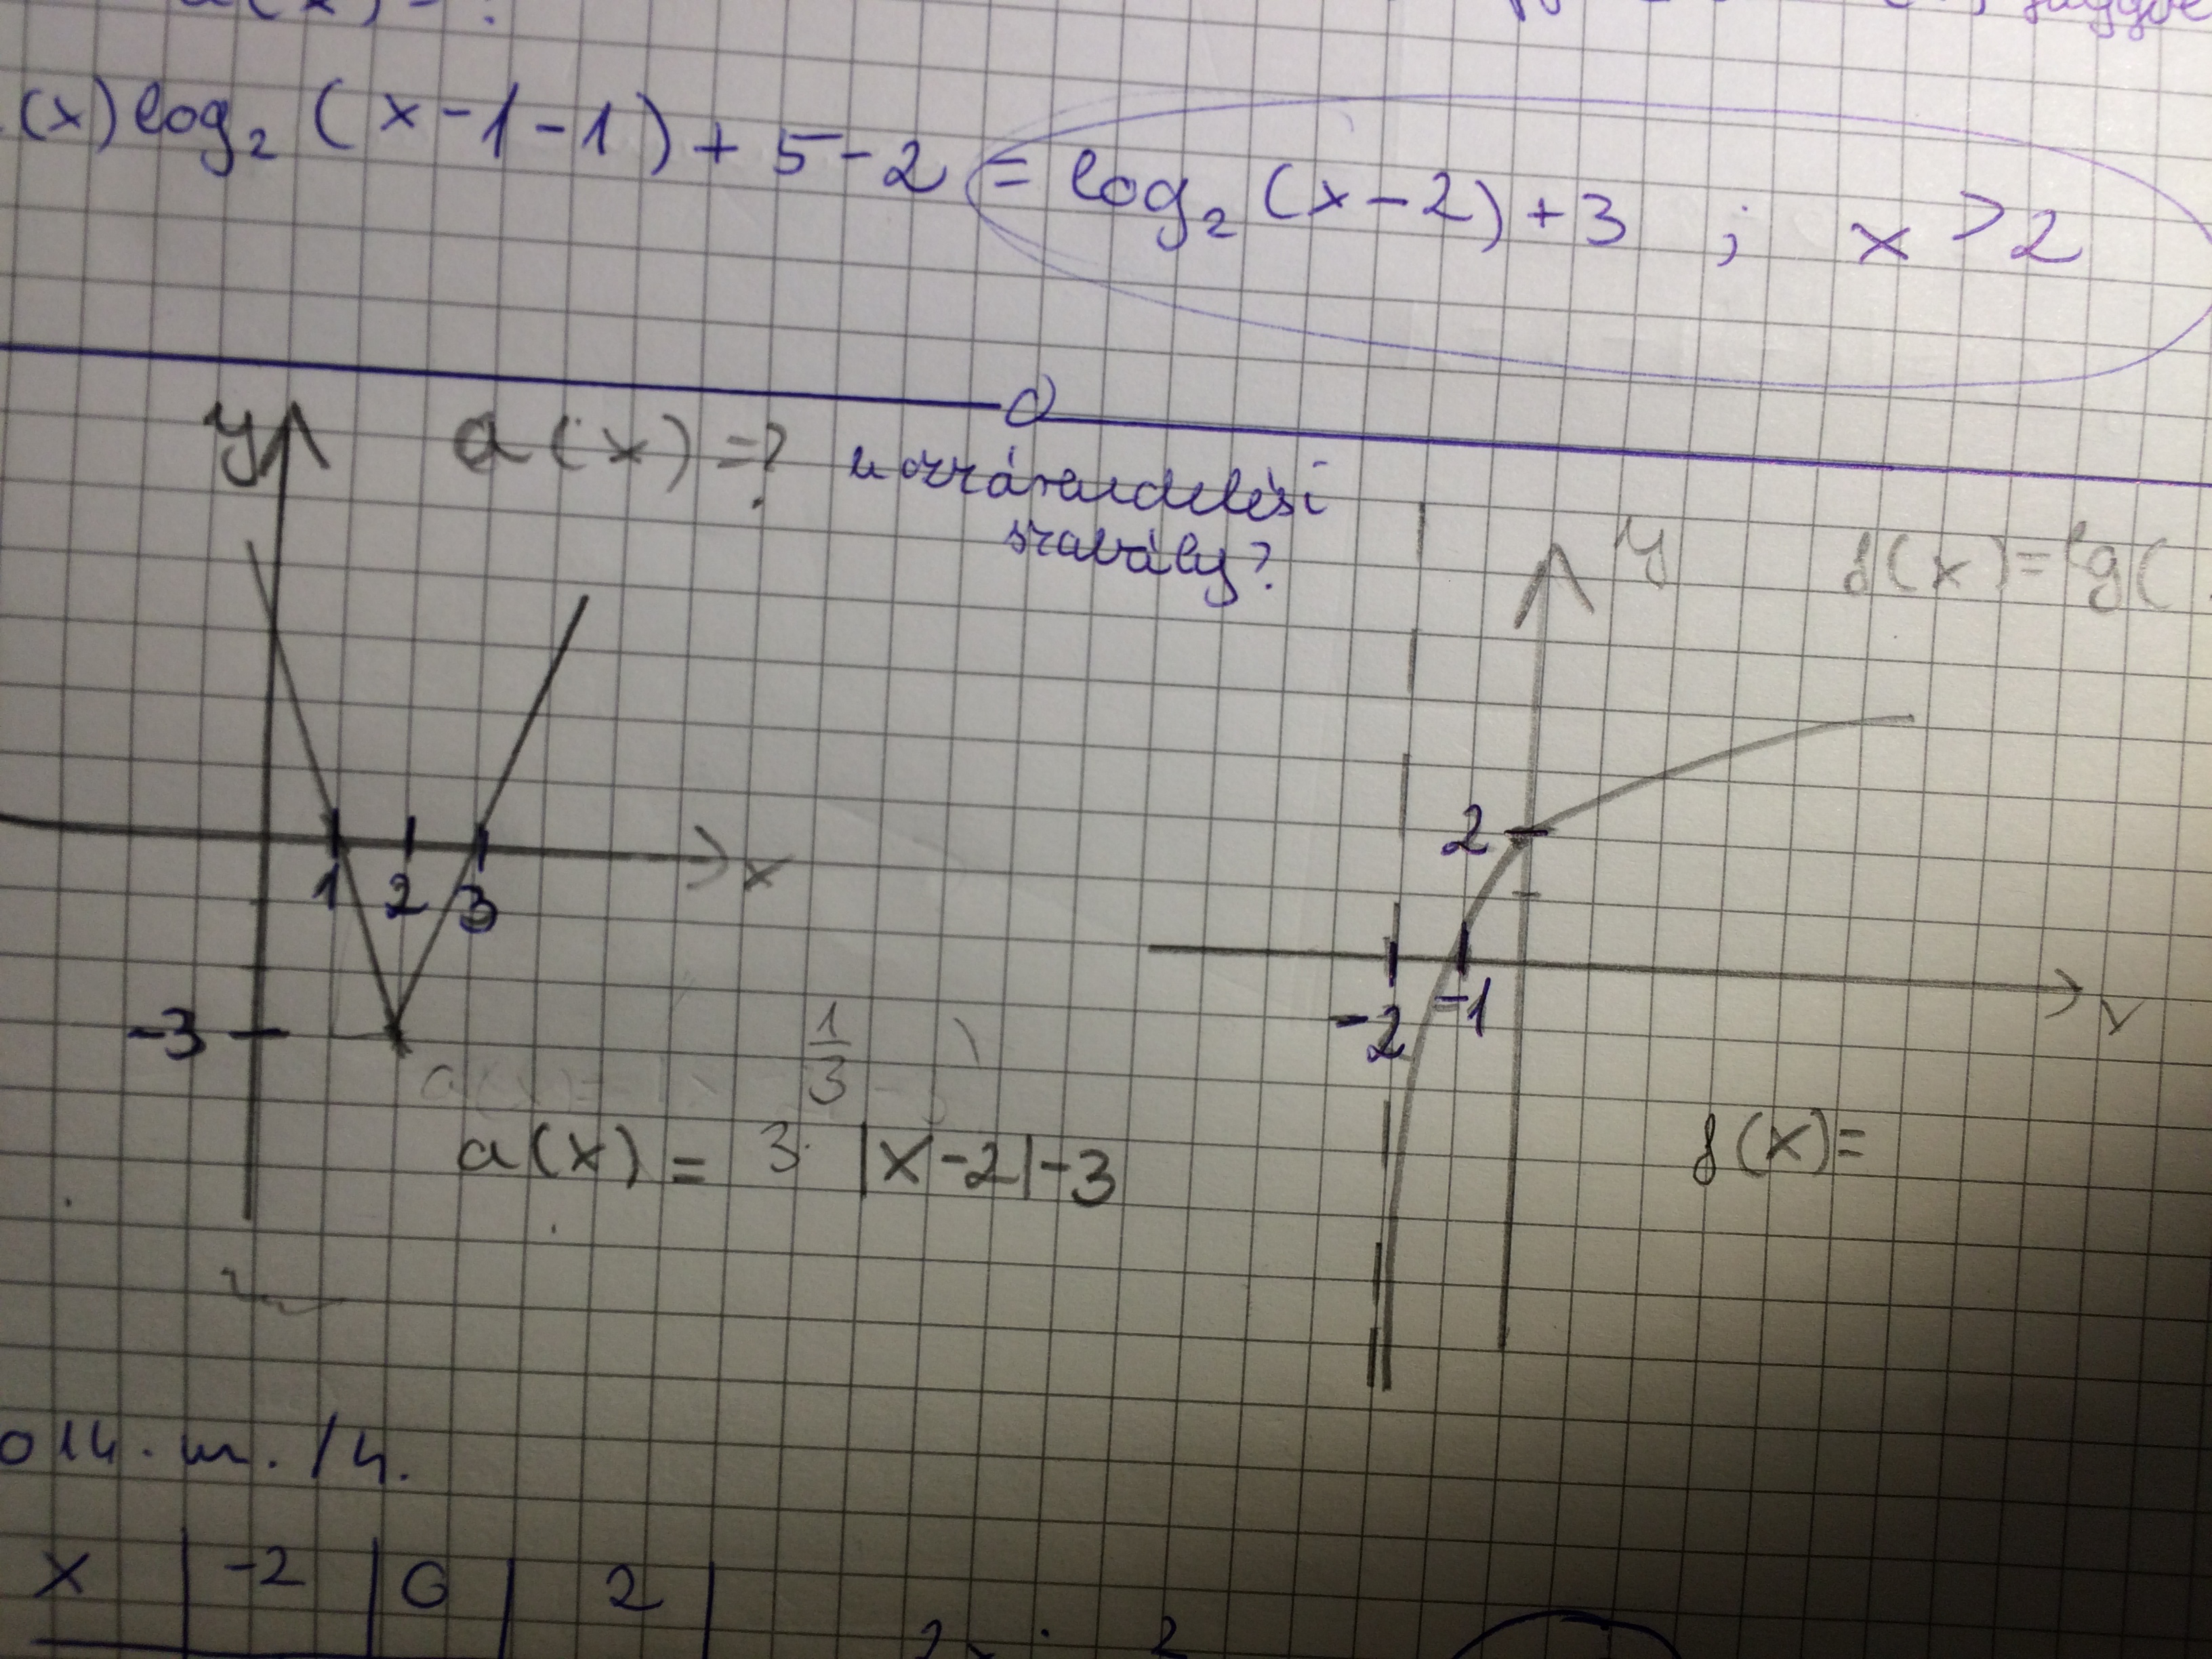 (x) log₂ (x-1-1) + 5-2 = log₂ (x-2)+3 ; x > 2
y
a(x)=? hozzárendelési
szabály?
y
f(x)=lg(
1 2 3
x
-3
2
-2 -1
x
1/3
a(x) = 3· |x-2|-3
f(x)=
014. m. /4.
x | -2 | 0 | 2 |